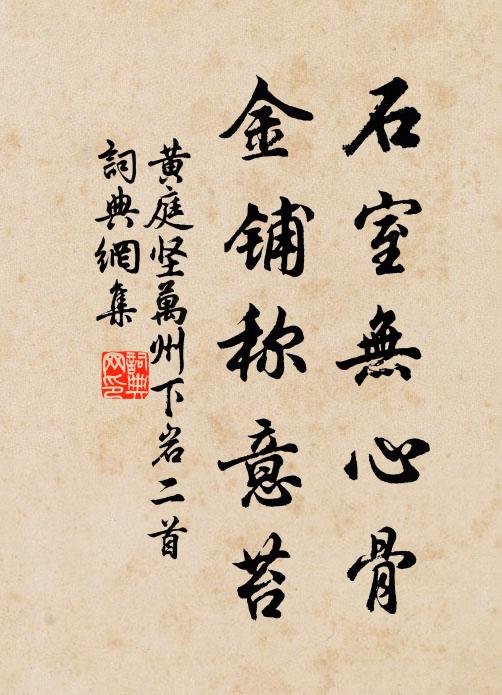 石室無心骨
金铺称意苔
黄庭坚萬州下岩二首
詞典網集
詞典网印